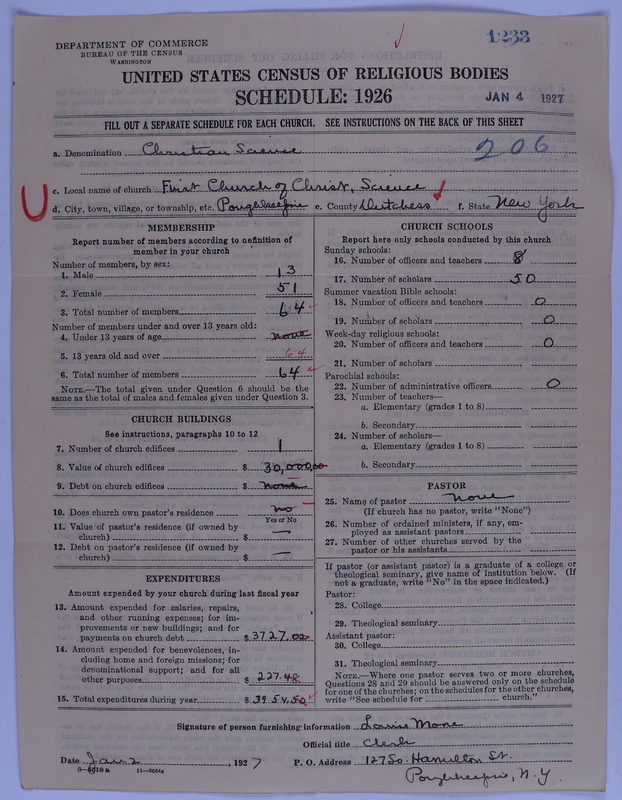 1233
DEPARTMENT OF COMMERCE
BUREAU OF THE CENSUS
WASHINGTON
UNITED STATES CENSUS OF RELIGIOUS BODIES
SCHEDULE: 1926
JAN 4 1927
FILL OUT A SEPARATE SCHEDULE FOR EACH CHURCH. SEE INSTRUCTIONS ON THE BACK OF THIS SHEET
a. Denomination Christian Science
206
c. Local name of church First Church of Christ, Science
U
d. City, town, village, or township, etc. Poughkeepsie e. County Dutchess f. State New York
MEMBERSHIP
Report number of members according to definition of
member in your church
Number of members, by sex:
1. Male 13
2. Female 51
3. Total number of members 64
Number of members under and over 13 years old:
4. Under 13 years of age none
5. 13 years old and over 64
6. Total number of members 64
NOTE.—The total given under Question 6 should be the
same as the total of males and females given under Question 3.
CHURCH BUILDINGS
See instructions, paragraphs 10 to 12
7. Number of church edifices 1
8. Value of church edifices $ 30,000.00
9. Debt on church edifices $ none
10. Does church own pastor's residence no
Yes or No
11. Value of pastor's residence (if owned by
church) $ —
12. Debt on pastor's residence (if owned by
church) $ —
EXPENDITURES
Amount expended by your church during last fiscal year
13. Amount expended for salaries, repairs,
and other running expenses; for im-
provements or new buildings; and for
payments on church debt $ 3727.02
14. Amount expended for benevolences, in-
cluding home and foreign missions; for
denominational support; and for all
other purposes $ 227.48
15. Total expenditures during year $ 3954.50
CHURCH SCHOOLS
Report here only schools conducted by this church
Sunday schools:
16. Number of officers and teachers 8
17. Number of scholars 50
Summer vacation Bible schools:
18. Number of officers and teachers 0
19. Number of scholars 0
Week-day religious schools:
20. Number of officers and teachers 0
21. Number of scholars
Parochial schools:
22. Number of administrative officers 0
23. Number of teachers—
a. Elementary (grades 1 to 8)
b. Secondary
24. Number of scholars—
a. Elementary (grades 1 to 8)
b. Secondary
PASTOR
25. Name of pastor none
(If church has no pastor, write "None")
26. Number of ordained ministers, if any, em-
ployed as assistant pastors
27. Number of other churches served by the
pastor or his assistants
If pastor (or assistant pastor) is a graduate of a college or
theological seminary, give name of institution below. (If
not a graduate, write "No" in the space indicated.)
Pastor:
28. College
29. Theological seminary
Assistant pastor:
30. College
31. Theological seminary
NOTE.—Where one pastor serves two or more churches,
Questions 28 and 29 should be answered only on the schedule
for one of the churches; on the schedules for the other churches,
write "See schedule for church."
Signature of person furnishing information Louise
Official title Clerk
Date Jan 2, 1927 P. O. Address 127 So. Hamilton St.
11—9054a Poughkeepsie, N.Y.